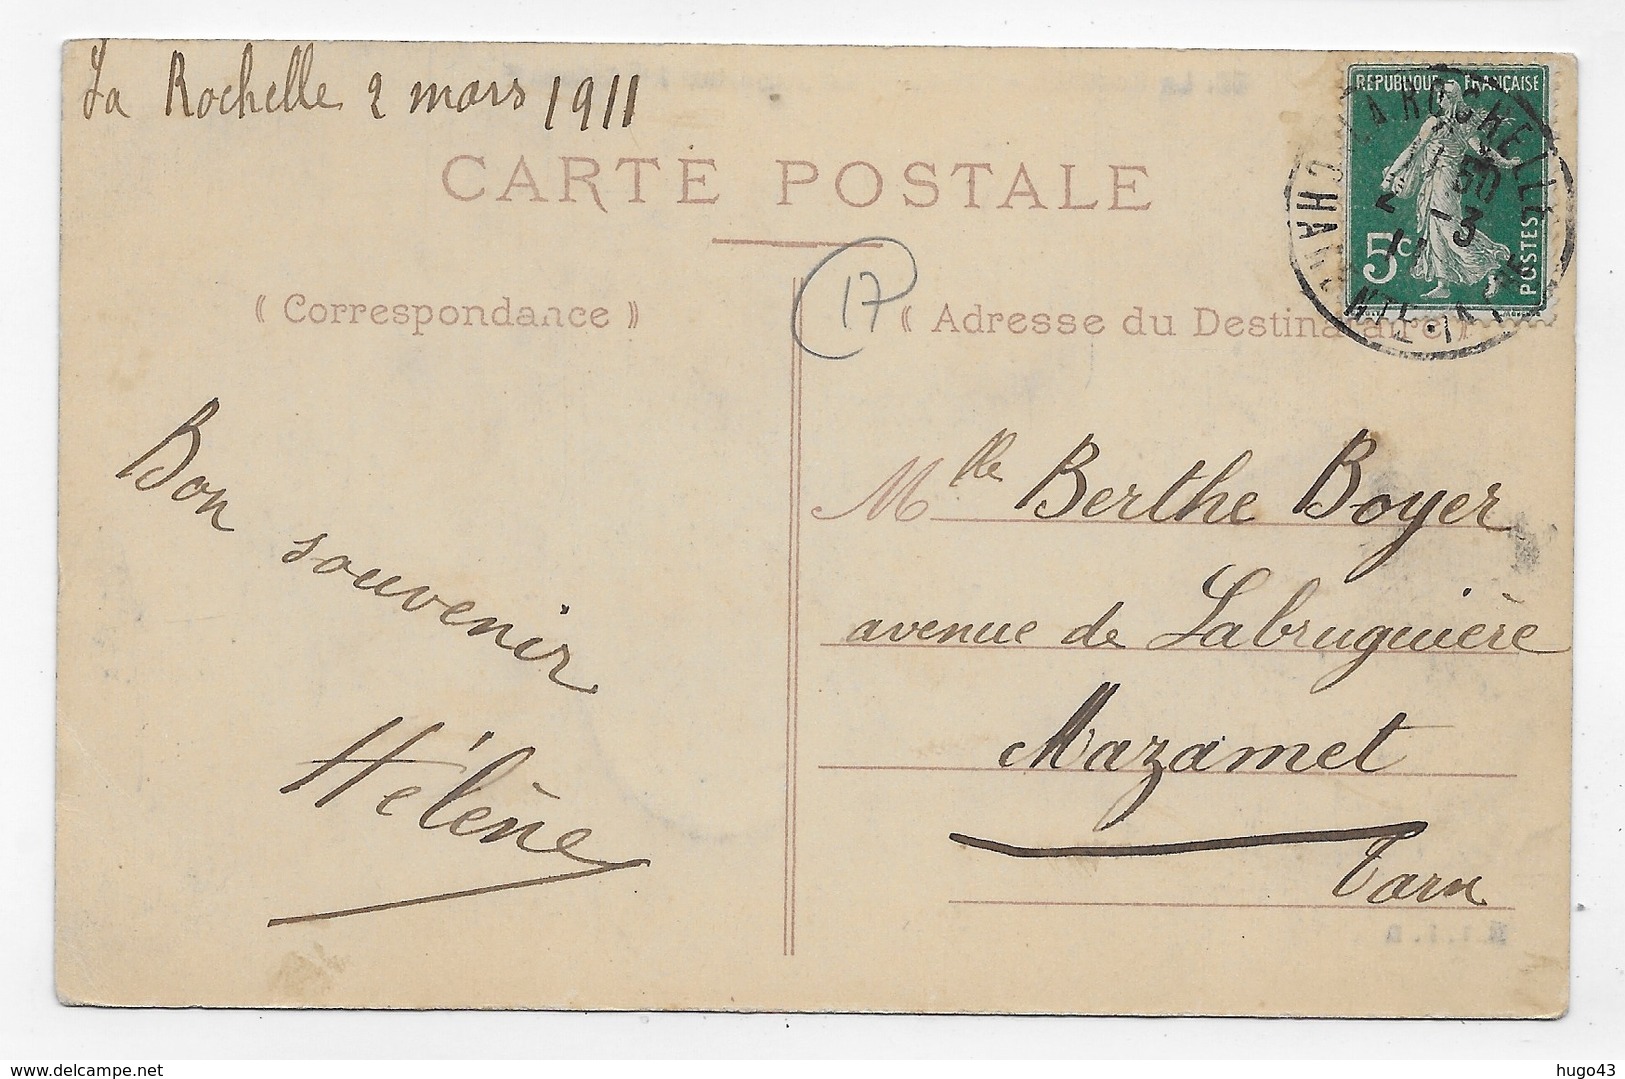 La Rochelle 2 mars 1911
REPUBLIQUE FRANÇAISE
5c
POSTES
LA ROCHELLE
1 50
2 - 3
11
CARTE POSTALE
17
⸨ Correspondance ⸩
⸨ Adresse du Destinataire ⸩
Bon souvenir
Hélène
Mlle Berthe Boyer
avenue de Labruguière
Mazamet
Tarn
hugo43